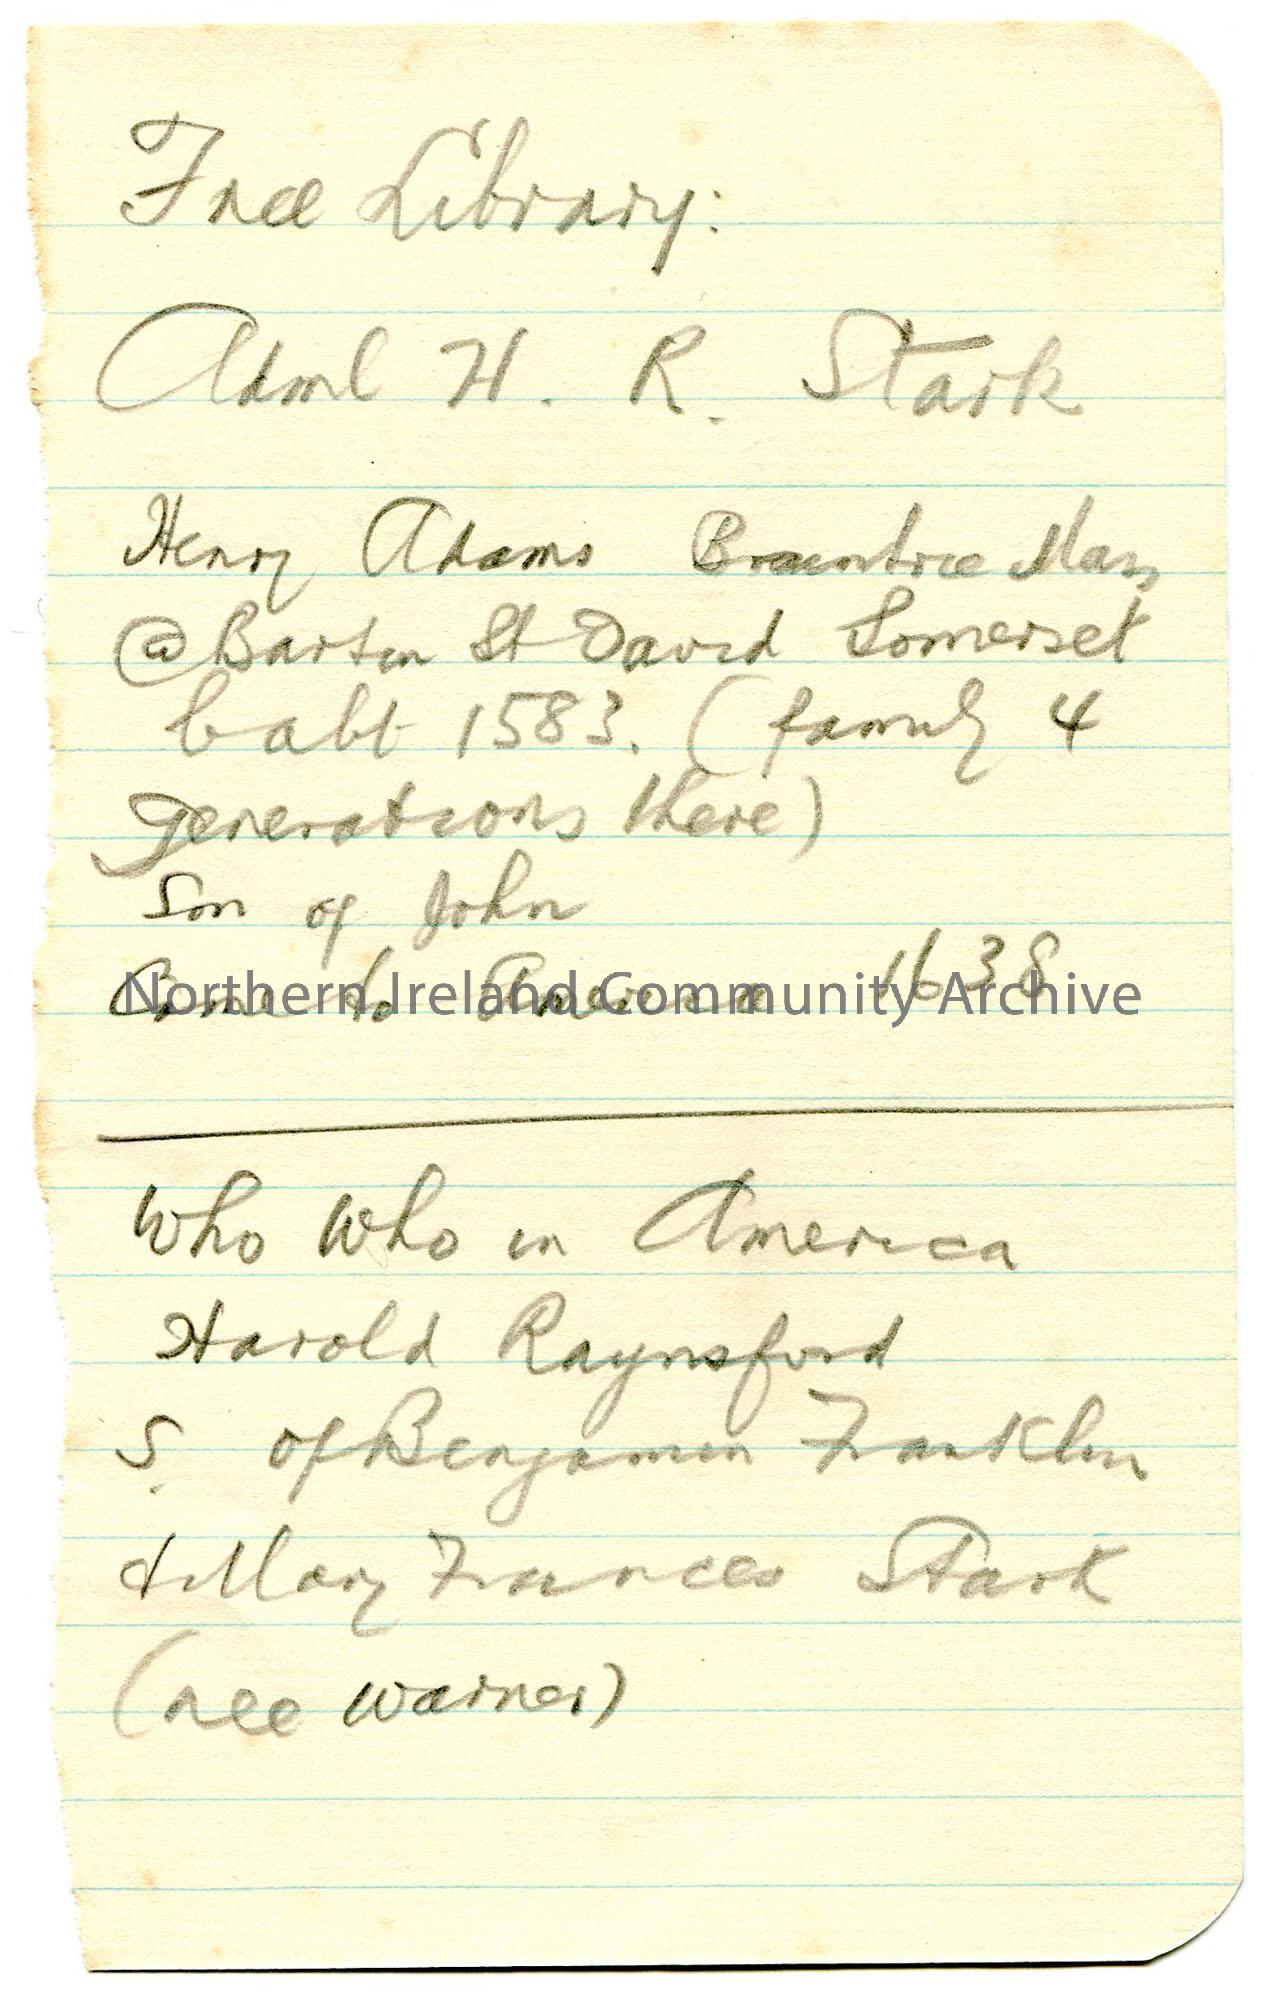 Free Library:
Adml H. R. Stark
Henry Adams Braintree Mass
@ Barton St David Somerset
b abt 1583. (family 4
generations there)
Son of John
Came to America 1638
Northern Ireland Community Archive
Who Who in America
Harold Raynsford
S. of Benjamin Franklin
& Mary Frances Stark
(nee Warner)